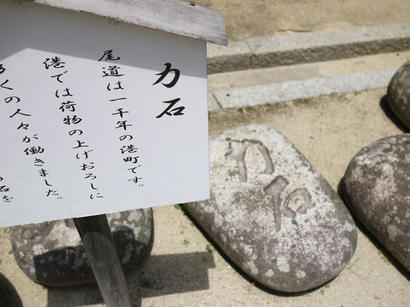 力石
尾道は一千年の港町です。
港では荷物の上げおろしに
くの人々が働きました。
石を
力石